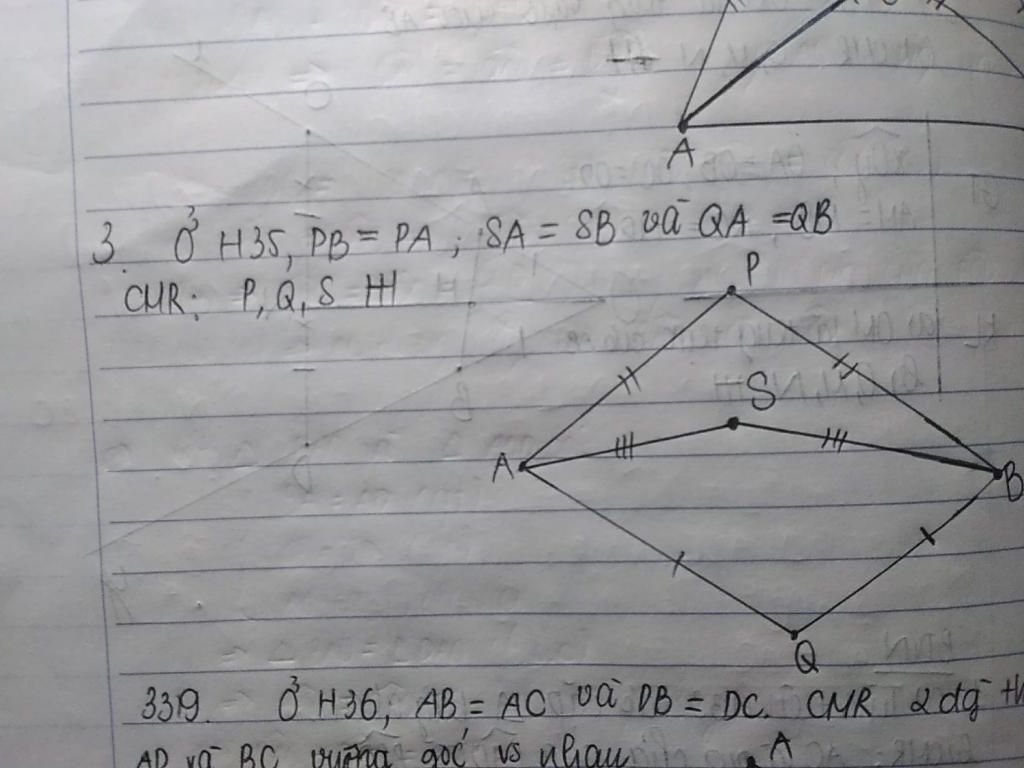 A
3. Ở H35, PB = PA ; SA = SB và QA = QB
CMR: P, Q, S
P
S
A
B
Q
339. Ở H36, AB = AC và DB = DC. CMR 2 đg
AD và BC vuông góc vs nhau
A